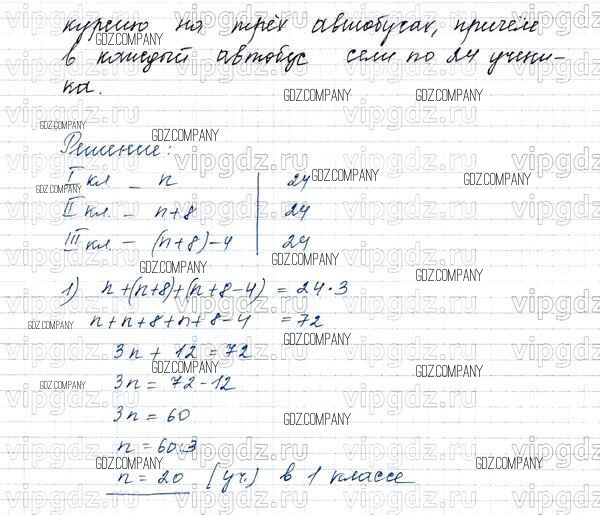 курсию на трёх автобусах, причём
в каждый автобус сели по 24 учени-
ка.
Решение:
I кл – n | 24
II кл – n+8 | 24
III кл – (n+8)–4 | 24
1) n+(n+8)+(n+8–4) = 24·3
n+n+8+n+8–4 = 72
3n + 12 = 72
3n = 72–12
3n = 60
n = 60:3
n = 20 (уч.) в 1 классе
GDZ.COMPANY
vipgdz.ru